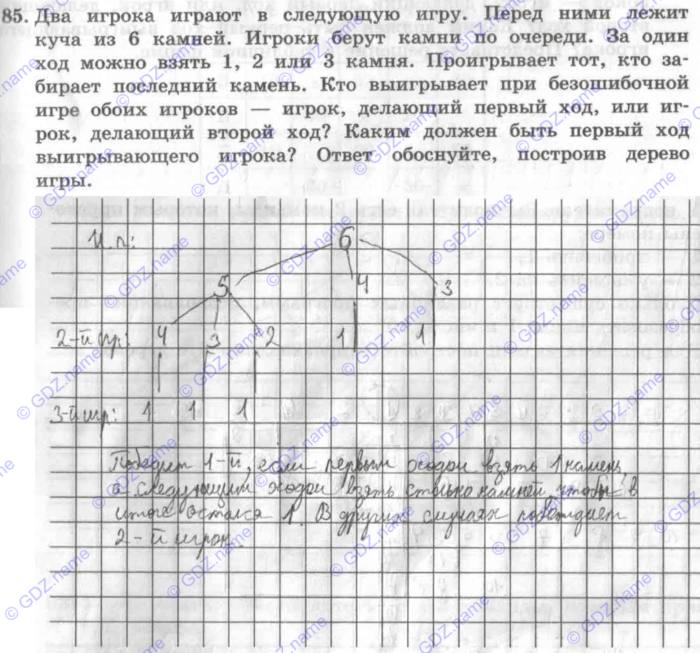 85. Два игрока играют в следующую игру. Перед ними лежит
куча из 6 камней. Игроки берут камни по очереди. За один
ход можно взять 1, 2 или 3 камня. Проигрывает тот, кто за-
бирает последний камень. Кто выигрывает при безошибочной
игре обоих игроков — игрок, делающий первый ход, или иг-
рок, делающий второй ход? Каким должен быть первый ход
выигрывающего игрока? Ответ обоснуйте, построив дерево
игры.
И.п: 6
5 4 3
2-й гр: 4 3 2 1 1
3-й игр: 1 1 1
Победит 1-й, если первым ходом взять 1 камень,
а следующим ходом взять столько камней, чтобы в
итоге остался 1. В других случаях побеждает
2-й игрок.
© GDZ.name